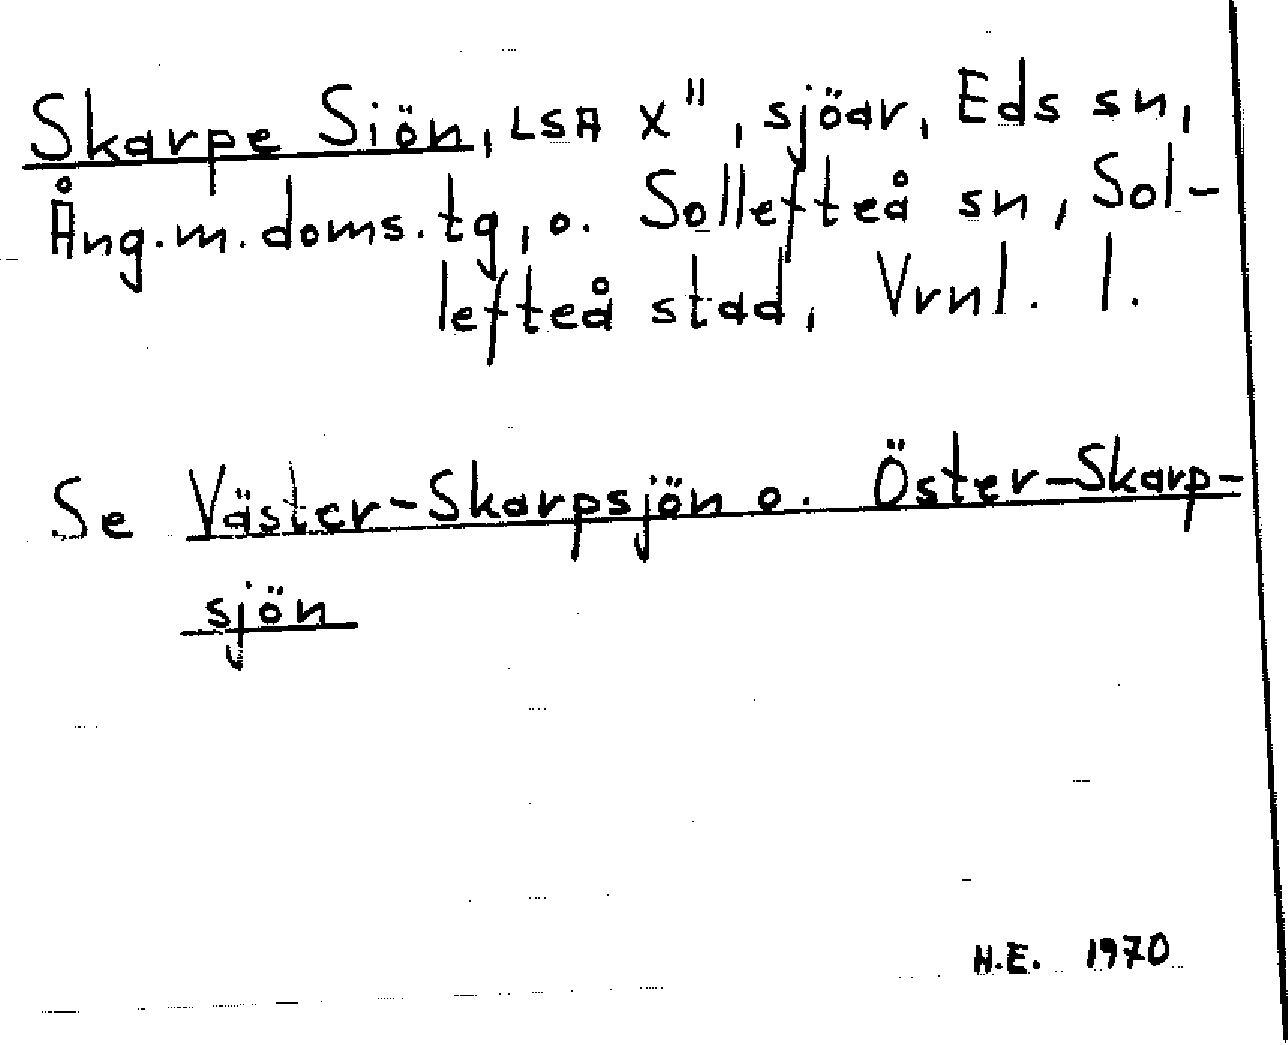 Skarpe Siön, LSA X", sjöar, Eds sn,
Ång.m.doms.tg, o. Sollefteå sn, Sol-
lefteå stad, Vrnl. l.
Se Väster-Skarpsjön o. Öster-Skarp-
sjön
H.E. 1970